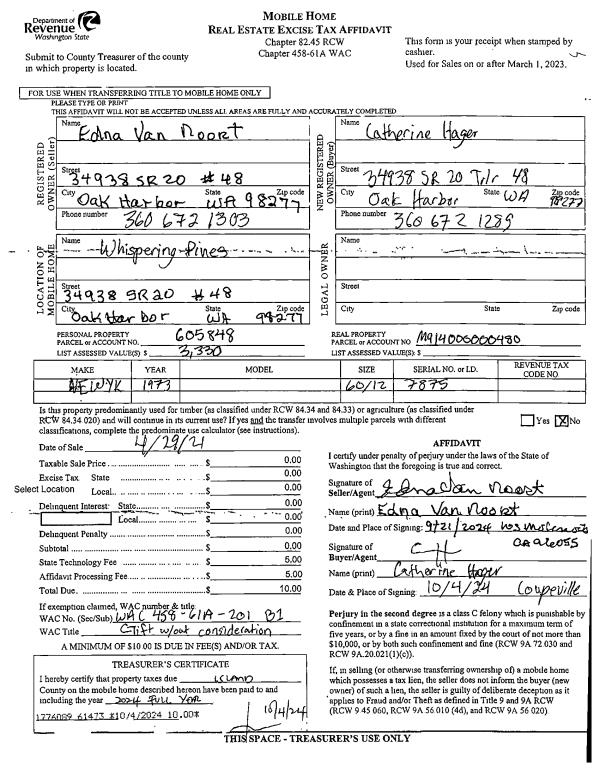 Department of
Revenue
Washington State
Submit to County Treasurer of the county
in which property is located.
MOBILE HOME
REAL ESTATE EXCISE TAX AFFIDAVIT
Chapter 82.45 RCW
Chapter 458-61A WAC
This form is your receipt when stamped by
cashier.
Used for Sales on or after March 1, 2023.
FOR USE WHEN TRANSFERRING TITLE TO MOBILE HOME ONLY
PLEASE TYPE OR PRINT
THIS AFFIDAVIT WILL NOT BE ACCEPTED UNLESS ALL AREAS ARE FULLY AND ACCURATELY COMPLETED
REGISTERED OWNER (Seller)
Name
Edna Van Noort
Street
34938 SR 20 #48
City State Zip code
Oak Harbor WA 98277
Phone number 360 672 1303
NEW REGISTERED OWNER (Buyer)
Name
Catherine Hager
Street
34938 SR 20 Tlr 48
City State Zip code
Oak Harbor WA 98277
Phone number 360 672 1289
LOCATION OF MOBILE HOME
Name
Whispering Pines
Street
34938 SR20 #48
City State Zip code
Oak Harbor WA 98277
LEGAL OWNER
Name
Street
City State Zip code
PERSONAL PROPERTY
PARCEL or ACCOUNT NO. 605848
LIST ASSESSED VALUE(S) $ 3,330
REAL PROPERTY
PARCEL or ACCOUNT NO M914000000480
LIST ASSESSED VALUE(S) $
MAKE YEAR MODEL SIZE SERIAL NO. or I.D. REVENUE TAX CODE NO
NEWYK 1973 60/12 7875
Is this property predominantly used for timber (as classified under RCW 84.34 and 84.33) or agriculture (as classified under
RCW 84.34 020) and will continue in its current use? If yes and the transfer involves multiple parcels with different
classifications, complete the predominate use calculator (see instructions).
Yes X No
Date of Sale 4/29/21
Taxable Sale Price $ 0.00
Excise Tax State $ 0.00
Select Location Local $ 0.00
Delinquent Interest: State $ 0.00
Local $ 0.00
Delinquent Penalty $ 0.00
Subtotal $ 0.00
State Technology Fee $ 5.00
Affidavit Processing Fee $ 5.00
Total Due $ 10.00
If exemption claimed, WAC number & title
WAC No. (Sec/Sub) WAC 458-61A-201 B1
WAC Title Gift w/out consideration
A MINIMUM OF $10.00 IS DUE IN FEE(S) AND/OR TAX.
TREASURER'S CERTIFICATE
I hereby certify that property taxes due ISLAND
County on the mobile home described hereon have been paid to and
including the year 2024 FULL YEAR
10/4/24
1776089 61473 $10/4/2024 10.00*
AFFIDAVIT
I certify under penalty of perjury under the laws of the State of
Washington that the foregoing is true and correct.
Signature of
Seller/Agent Edna Van Noort
Name (print) Edna Van Noort
Date and Place of Signing: 9/21/2024
Signature of
Buyer/Agent CH
Name (print) Catherine Hager
Date & Place of Signing: 10/4/24 Coupeville
Perjury in the second degree is a class C felony which is punishable by
confinement in a state correctional institution for a maximum term of
five years, or by a fine in an amount fixed by the court of not more than
$10,000, or by both such confinement and fine (RCW 9A 72 030 and
RCW 9A.20.021(1)(c)).
If, in selling (or otherwise transferring ownership of) a mobile home
which possesses a tax lien, the seller does not inform the buyer (new
owner) of such a lien, the seller is guilty of deliberate deception as it
applies to Fraud and/or Theft as defined in Title 9 and 9A RCW
(RCW 9 45 060, RCW 9A 56 010 (4d), and RCW 9A 56 020).
THIS SPACE - TREASURER'S USE ONLY